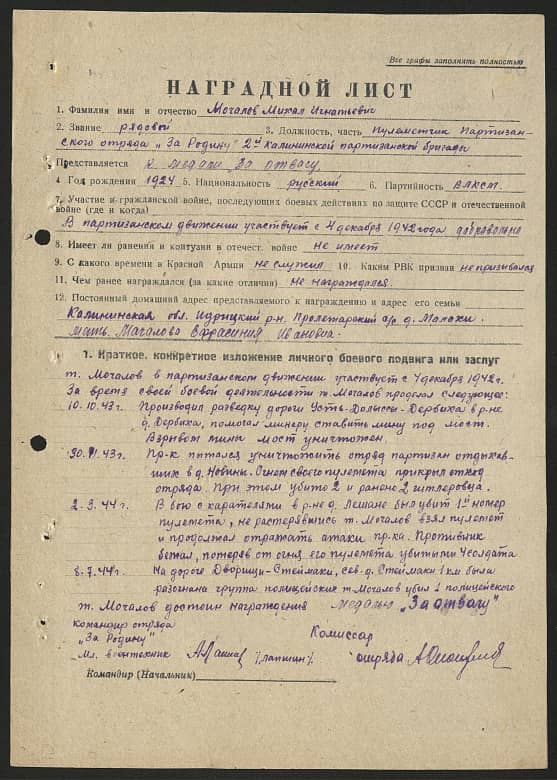 Все графы заполнять полностью
НАГРАДНОЙ ЛИСТ
1. Фамилия имя и отчество Мочалов Михал Игнатьевич
2. Звание рядовой 3. Должность, часть Пулеметчик Партизан-
ского отряда „За Родину" 2ой Калининской партизанской бригады
Представляется к медали „За отвагу"
4 Год рождения 1924 5. Национальность русский 6. Партийность ВЛКСМ.
7. Участие в гражданской войне, последующих боевых действиях по защите СССР и отечественной
войне (где и когда)
В партизанском движении участвует с 4 декабря 1942 года добровольно
8. Имеет ли ранения и контузии в отечест. войне не имеет
9. С какого времени в Красной Армии не служил 10. Каким РВК призван не призывался
11. Чем ранее награждался (за какие отличия) не награждался.
12. Постоянный домашний адрес представляемого к награждению и адрес его семьи
Калининская обл. Идрицкий р-н. Пролетарский с/с д.
мать Мачалова Ефрасиния Ивановна.
1. Краткое, конкретное изложение личного боевого подвига или заслуг
т. Мочалов в партизанском движении участвует с 4 декабря 1942 г.
За время своей боевой деятельности т. Мочалов проделал следующее:
10.10.43г. Производил разведку дороги Усть-Долыссы-Дербиха в р-не
д. Дербиха, помогал минеру ставить мину под мост.
Взрывом мины мост уничтожен.
30. 43г. Пр-к питался уничтожить отряд партизан отдыхав-
ших в д. Новины. Огнем своего пулемета прикрыл отход
отряда. При этом убито 2 и ранено 2 гитлеровца.
2.3.44г. В бою с карателями в р-не д. Лешане был убит 1й номер
пулемета, не растерявшись т. Мочалов взял пулемет
и продолжал отражать атаки пр-ка. Противник
бежал, потеряв от огня его пулемета убитыми 4 солдата
8.7.44г. На дороге Дворищи-Стеймаки, сев. д. Стеймаки 1 км была
разогнана группа полицейских т. Мочалов убил 1 полицейского
т. Мочалов достоин награждения медалью „За отвагу"
командир отряда
„За Родину" Комиссар
Мл. воентехник /Лапшин/. отряда
Командир (Начальник)